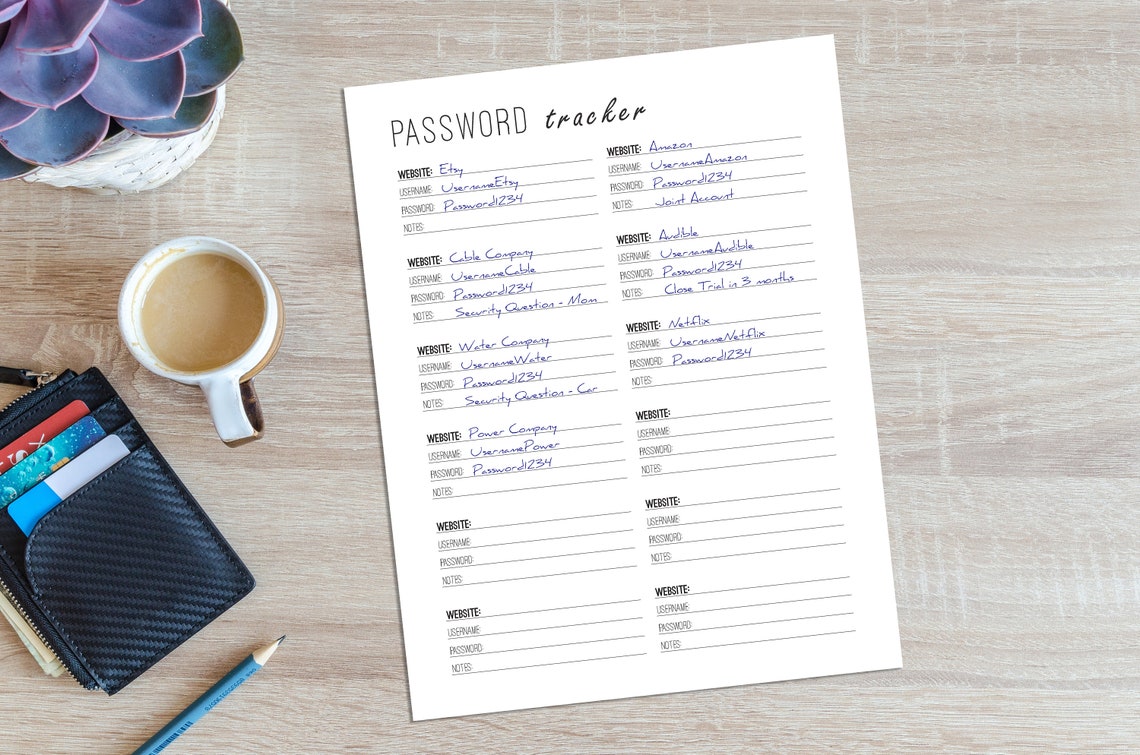 PASSWORD tracker
WEBSITE: Etsy
USERNAME: UsernameEtsy
PASSWORD: Password1234
NOTES:
WEBSITE: Cable Company
USERNAME: UsernameCable
PASSWORD: Password1234
NOTES: Security Question - Mom
WEBSITE: Water Company
USERNAME: UsernameWater
PASSWORD: Password1234
NOTES: Security Question - Car
WEBSITE: Power Company
USERNAME: UsernamePower
PASSWORD: Password1234
NOTES:
WEBSITE:
USERNAME:
PASSWORD:
NOTES:
WEBSITE:
USERNAME:
PASSWORD:
NOTES:
WEBSITE: Amazon
USERNAME: UsernameAmazon
PASSWORD: Password1234
NOTES: Joint Account
WEBSITE: Audible
USERNAME: UsernameAudible
PASSWORD: Password1234
NOTES: Close Trial in 3 months
WEBSITE: Netflix
USERNAME: UsernameNetflix
PASSWORD: Password1234
NOTES:
WEBSITE:
USERNAME:
PASSWORD:
NOTES:
WEBSITE:
USERNAME:
PASSWORD:
NOTES:
WEBSITE:
USERNAME:
PASSWORD:
NOTES: